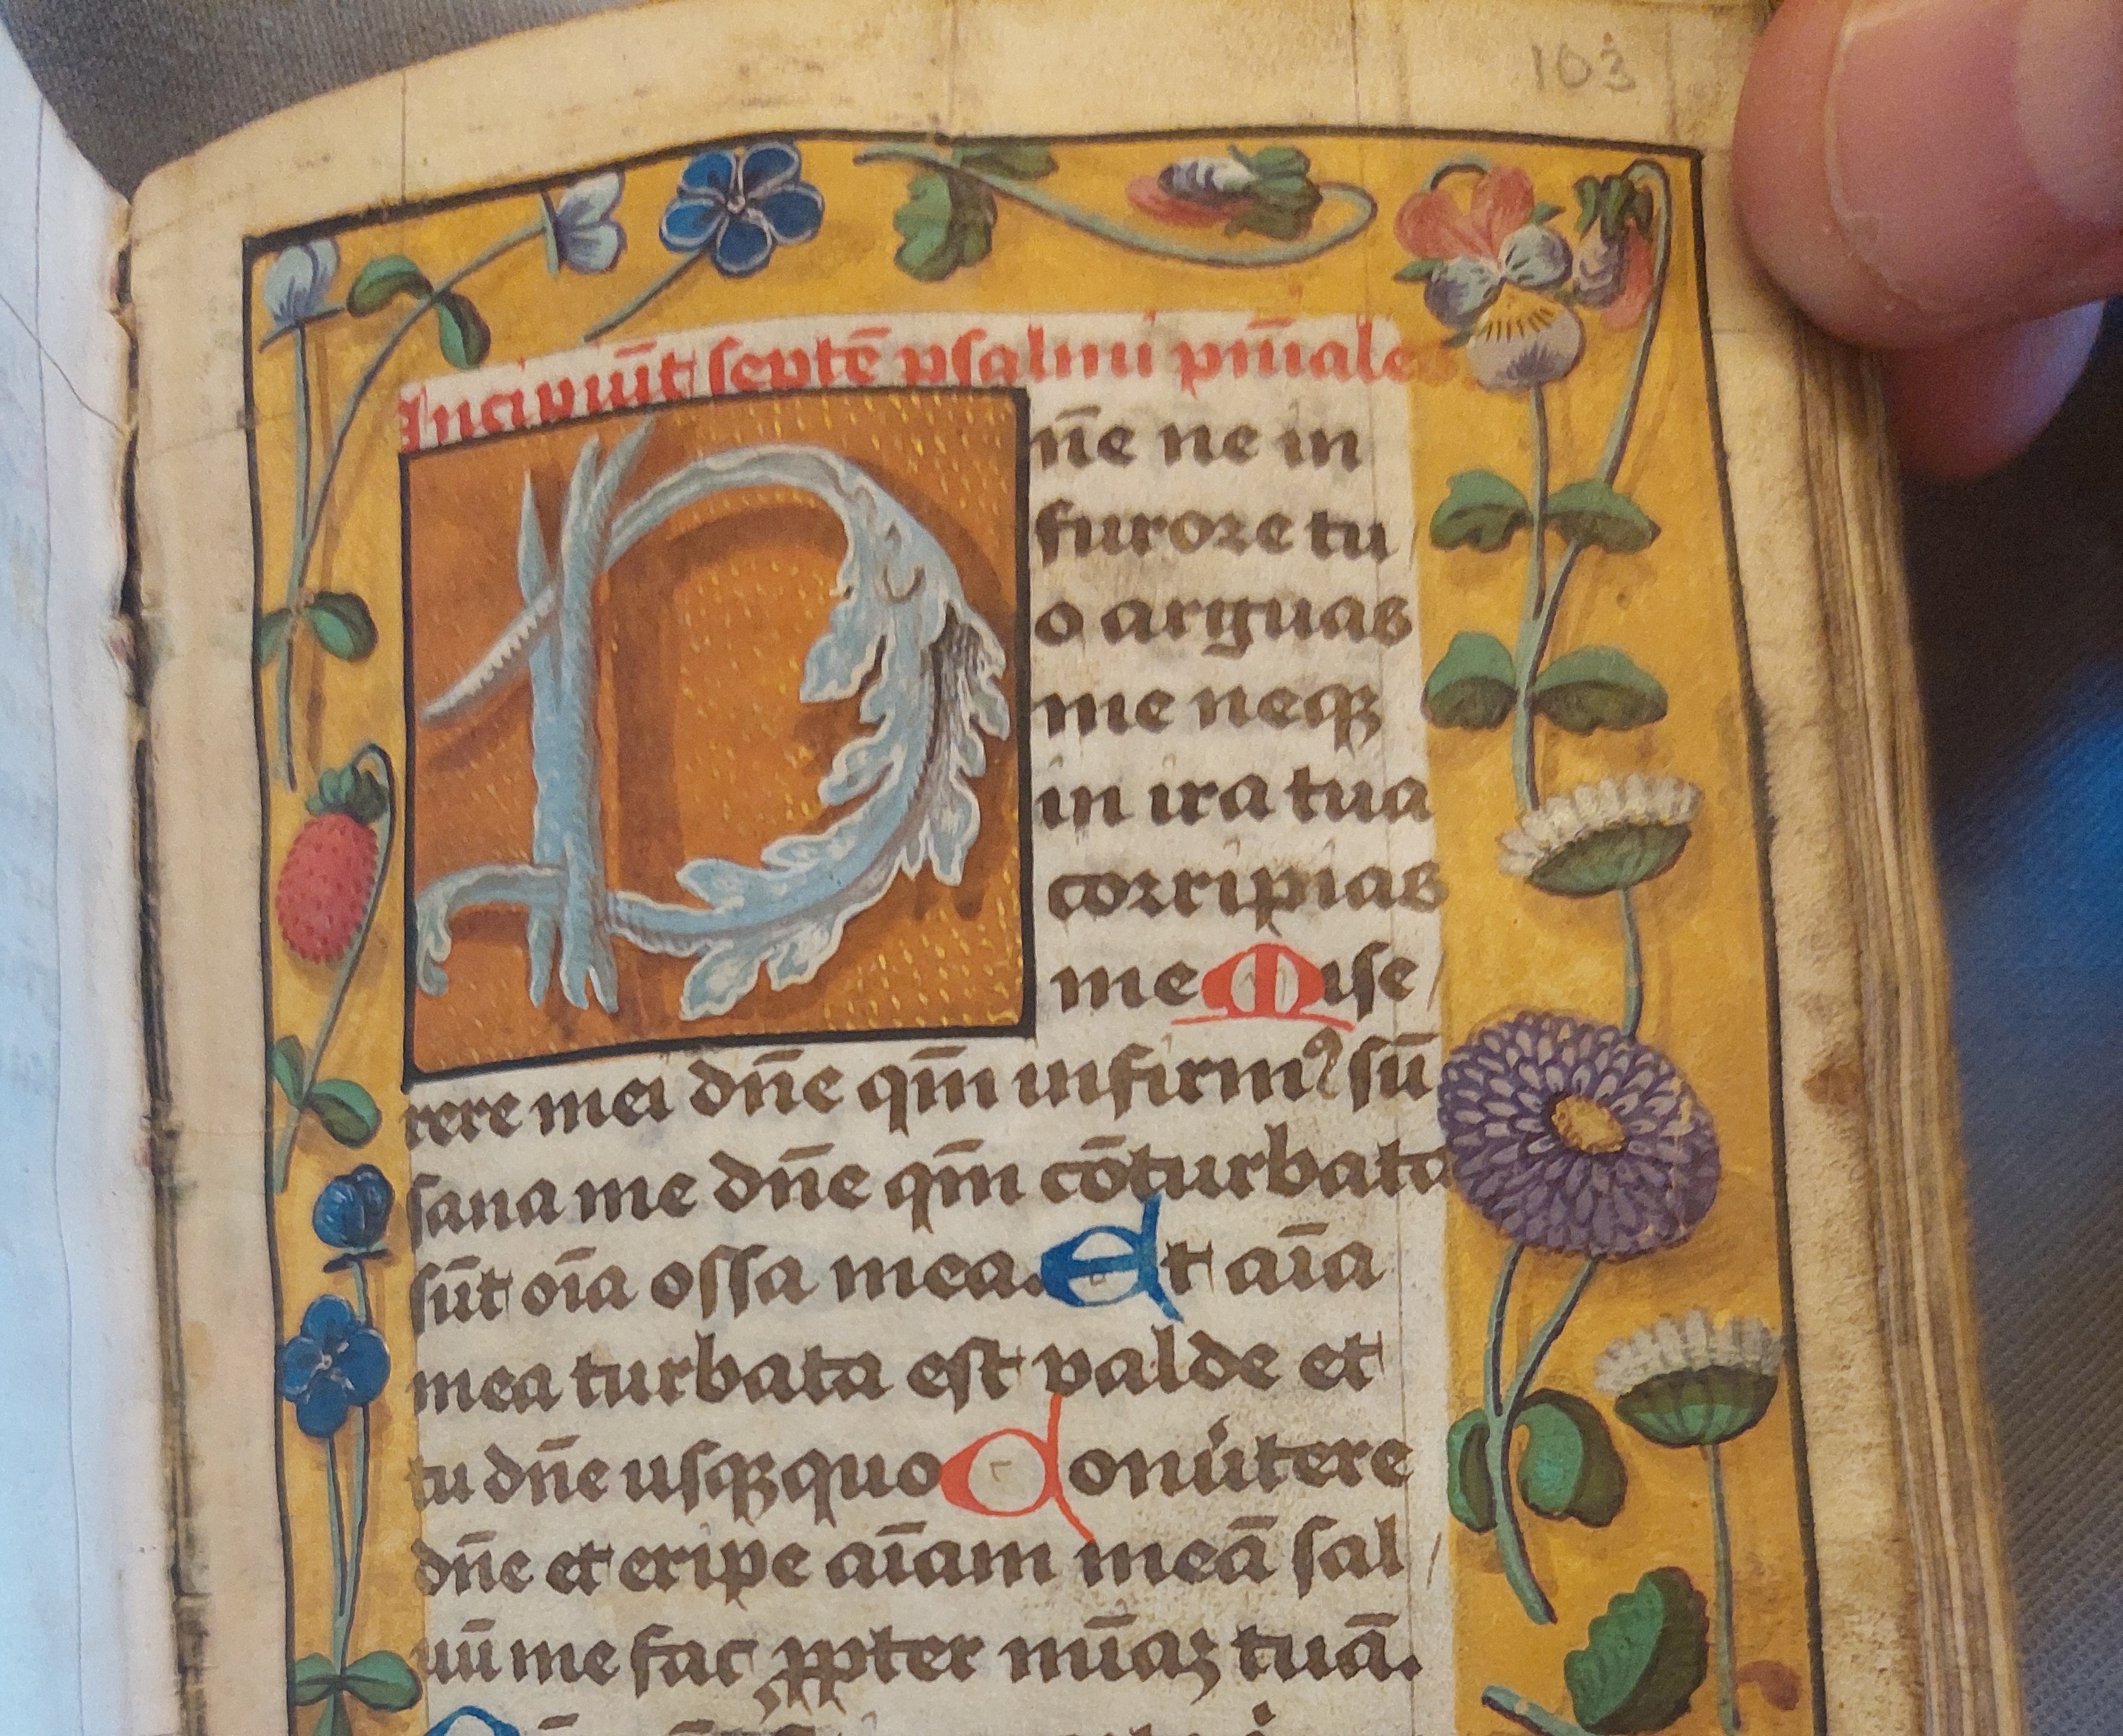 103
Incipiūt septē psalmi pn̄iales
Dn̄e ne in
furore tu
o arguas
me neqꝫ
in ira tua
corripias
me Mise
rere mei dn̄e qm̄ infirmꝰ sū
sana me dn̄e qm̄ cōturbata
sūt oīa ossa mea. Et aīa
mea turbata est valde et
tu dn̄e usqꝫ quo Conūtere
dn̄e et eripe aīam meā sal
uū me fac ꝓpter mīaꝫ tuā.